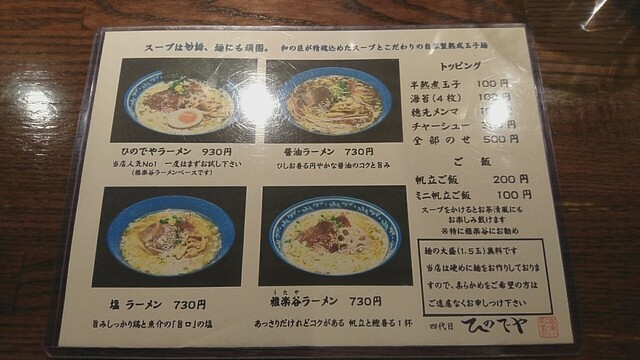 スープは妙諦、麺にも頑固。 和の匠が精魂込めたスープとこだわりの自家製熟成玉子麺
ひのでやラーメン 930円
当店人気No1 一度はまずお試し下さい
(雅楽谷ラーメンベースです)
醤油ラーメン 730円
ひしお香る円やかな醤油のコクと旨み
塩 ラーメン 730円
旨みしっかり鶏と魚介の「旨口」の塩
うたや
雅楽谷ラーメン 730円
あっさりだけれどコクがある 帆立と鰹香る1杯
トッピング
半熟煮玉子 100円
海苔(4枚) 100円
穂先メンマ
チャーシュー 円
全部のせ 500円
ご 飯
帆立ご飯 200円
ミニ帆立ご飯 100円
スープをかけるとお茶漬風にも
お楽しみ戴けます
※特に雅楽谷にお勧め
麺の大盛(1.5玉)無料です
当店は硬めに麺をお作りしておりま
すので、柔らかめをご希望の方は
ご遠慮なくお申しつけ下さい
四代目 ひのでや